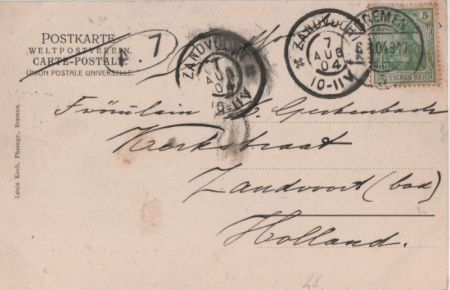 POSTKARTE
WELTPOSTVEREIN.
CARTE-POSTALE.
UNION POSTALE UNIVERSELLE.
7
ZANDVOORT
7
AUG
04
10-11V
ZANDVOORT
7
AUG
04
10-11V
BREMEN
5
DEUTSCHES REICH
Fräulein
Kerkstraat
Zandvoort (bad)
Holland.
Louis Koch, Photogr., Bremen.